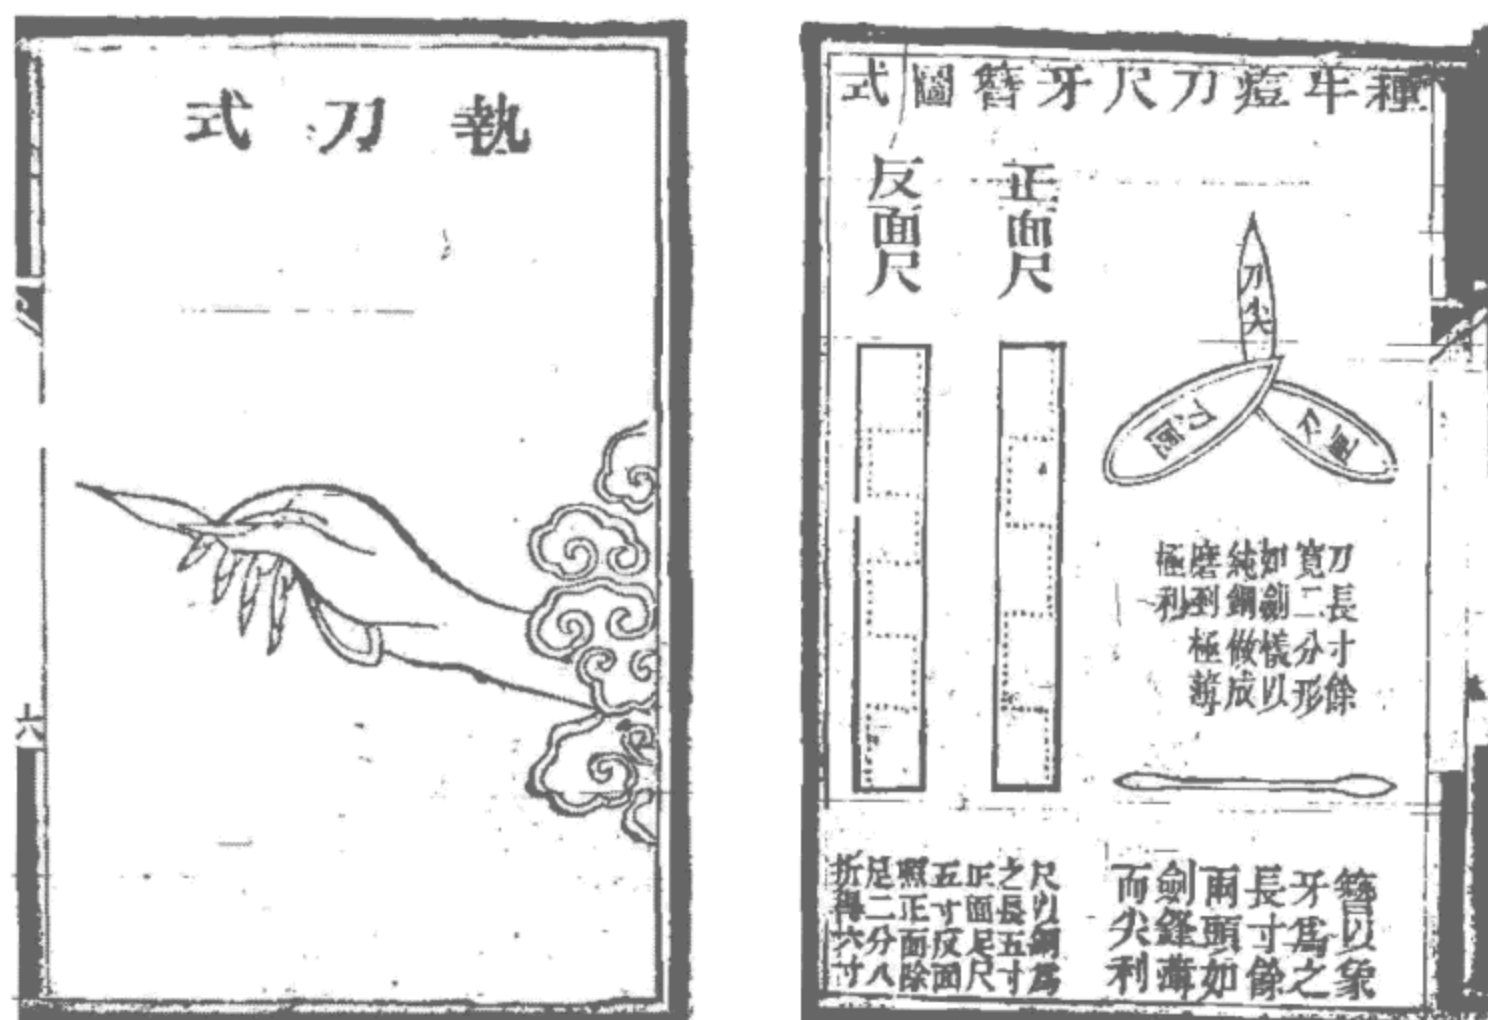 種牛痘刀尺牙簪圖式
刀尖
刀面
刀長寸餘
寬二分形
如劍樣以
純鋼做成
磨到極薄
極利
簪以象
牙爲之
長寸餘
兩頭如
劍鋒薄
而尖利
正面尺
反面尺
尺以銅爲
之長五寸
正面足尺
五寸反面
照正面除
足二分八
折得六寸
執刀式
六